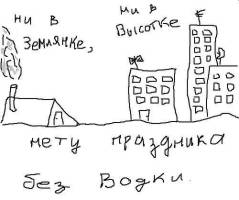 ни в
землянке,
ни в
высотке
нету праздника
без водки.